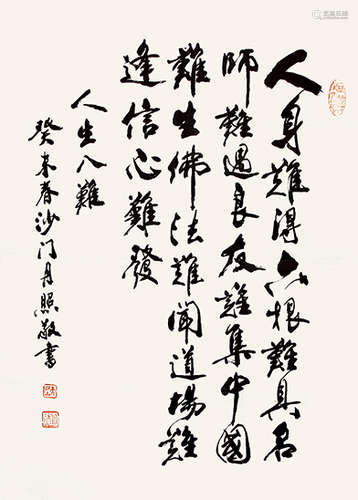 人身難得六根難具名
師難遇良友難集中國
難生佛法難聞道場難
逢信心難發
人生八難
癸未春沙门月照敬書